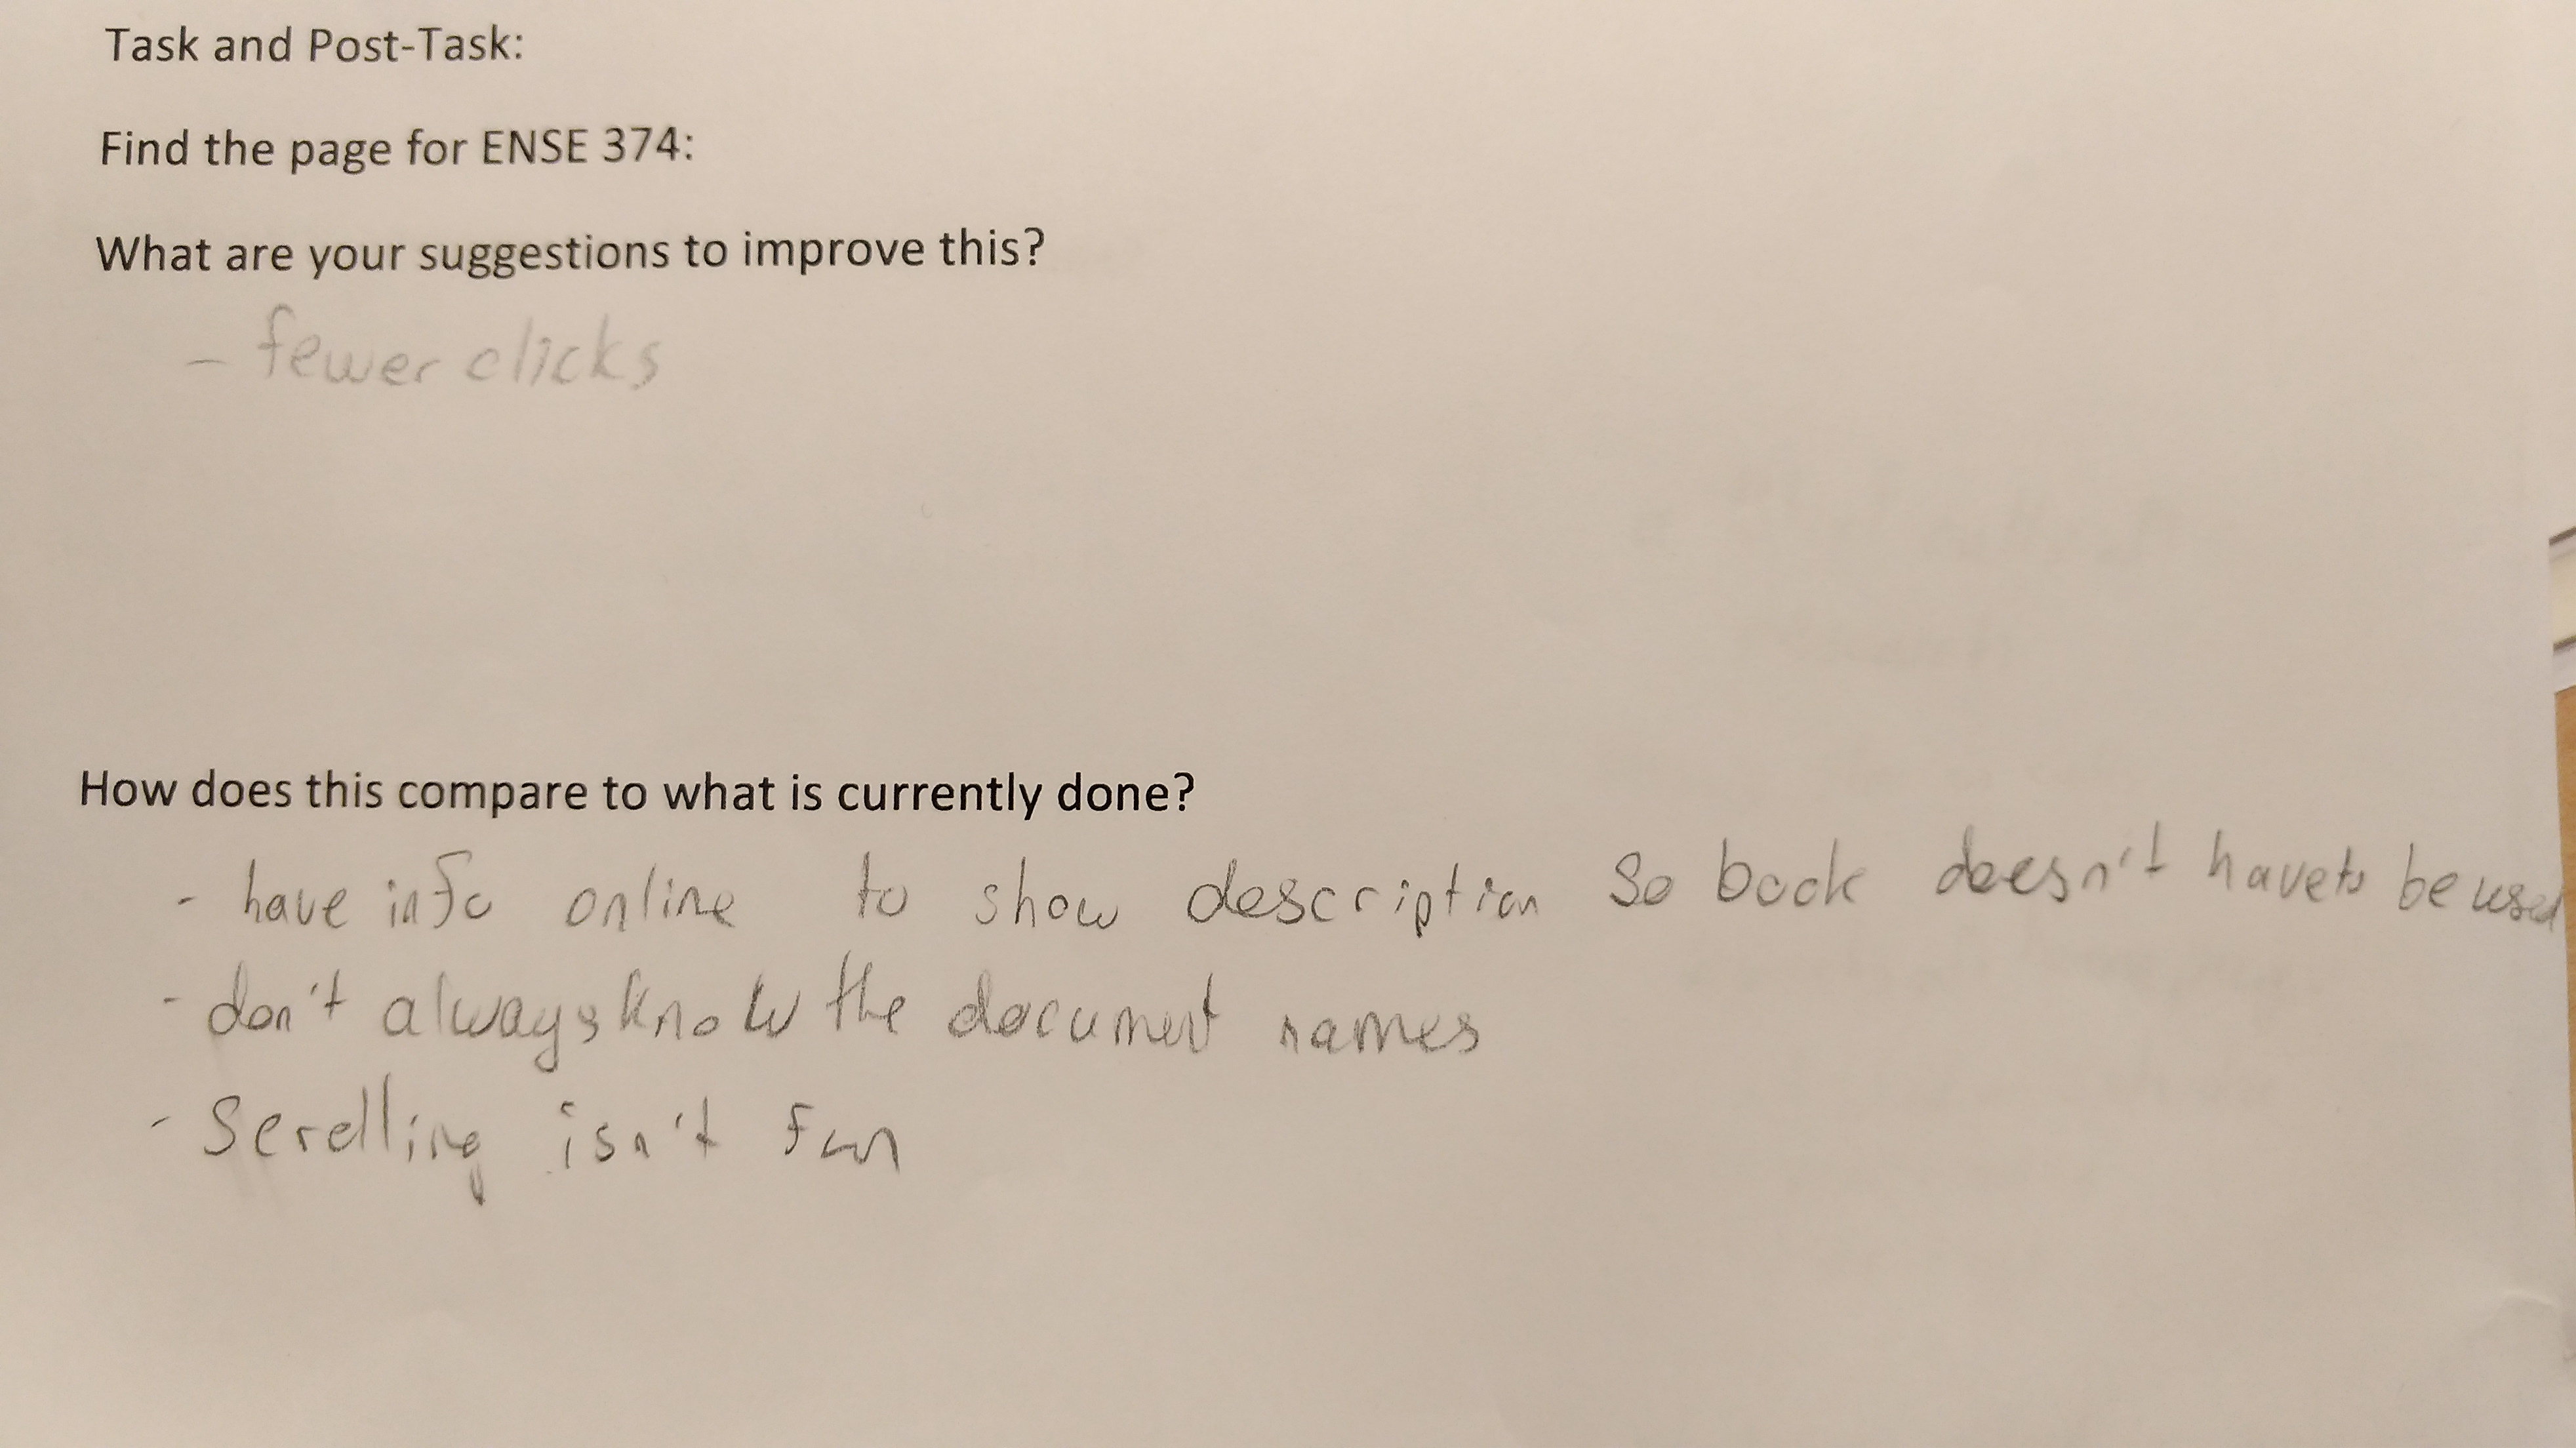 Task and Post-Task:
Find the page for ENSE 374:
What are your suggestions to improve this?
- fewer clicks
How does this compare to what is currently done?
- have info online to show description so book doesn't have to be used
- don't always know the document names
- Scrolling isn't fun